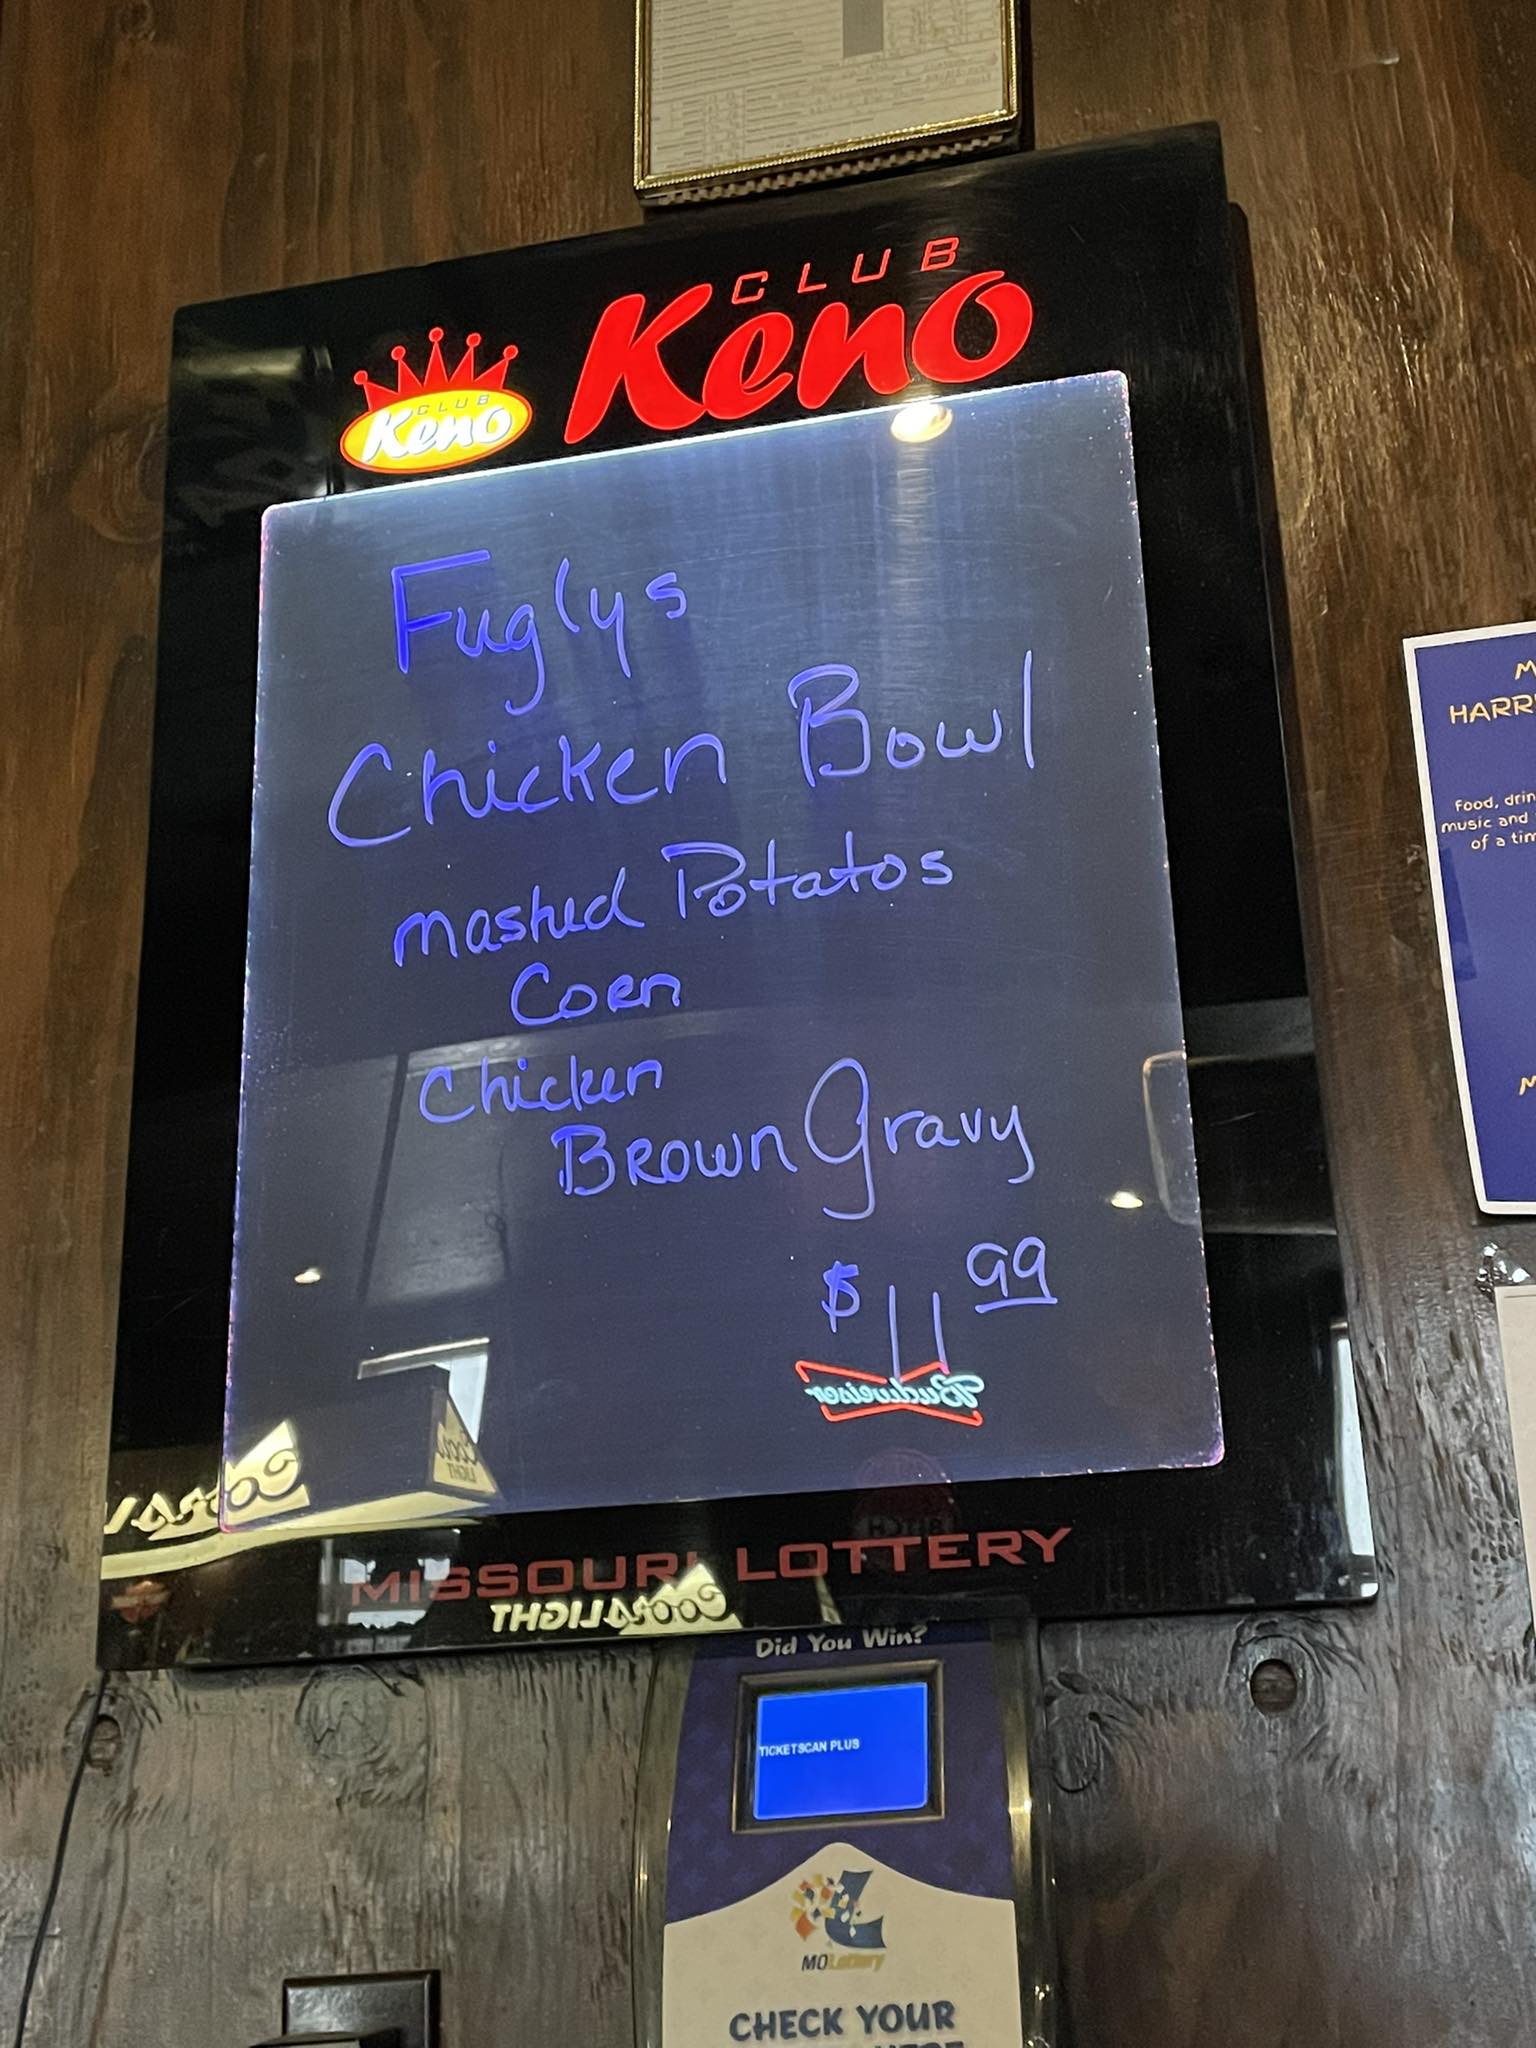 CLUB
Keno
CLUB
Keno
Fuglys
Chicken Bowl
mashed Potatos
Corn
Chicken
Brown Gravy
$11 99
Budweiser
Coors
LIGHT
Coors
MISSOURI LOTTERY
Coors LIGHT
Did You Win?
TICKETSCAN PLUS
MOLottery
CHECK YOUR
HERE
M
HARR
Food, drin
music and
of a tim
M